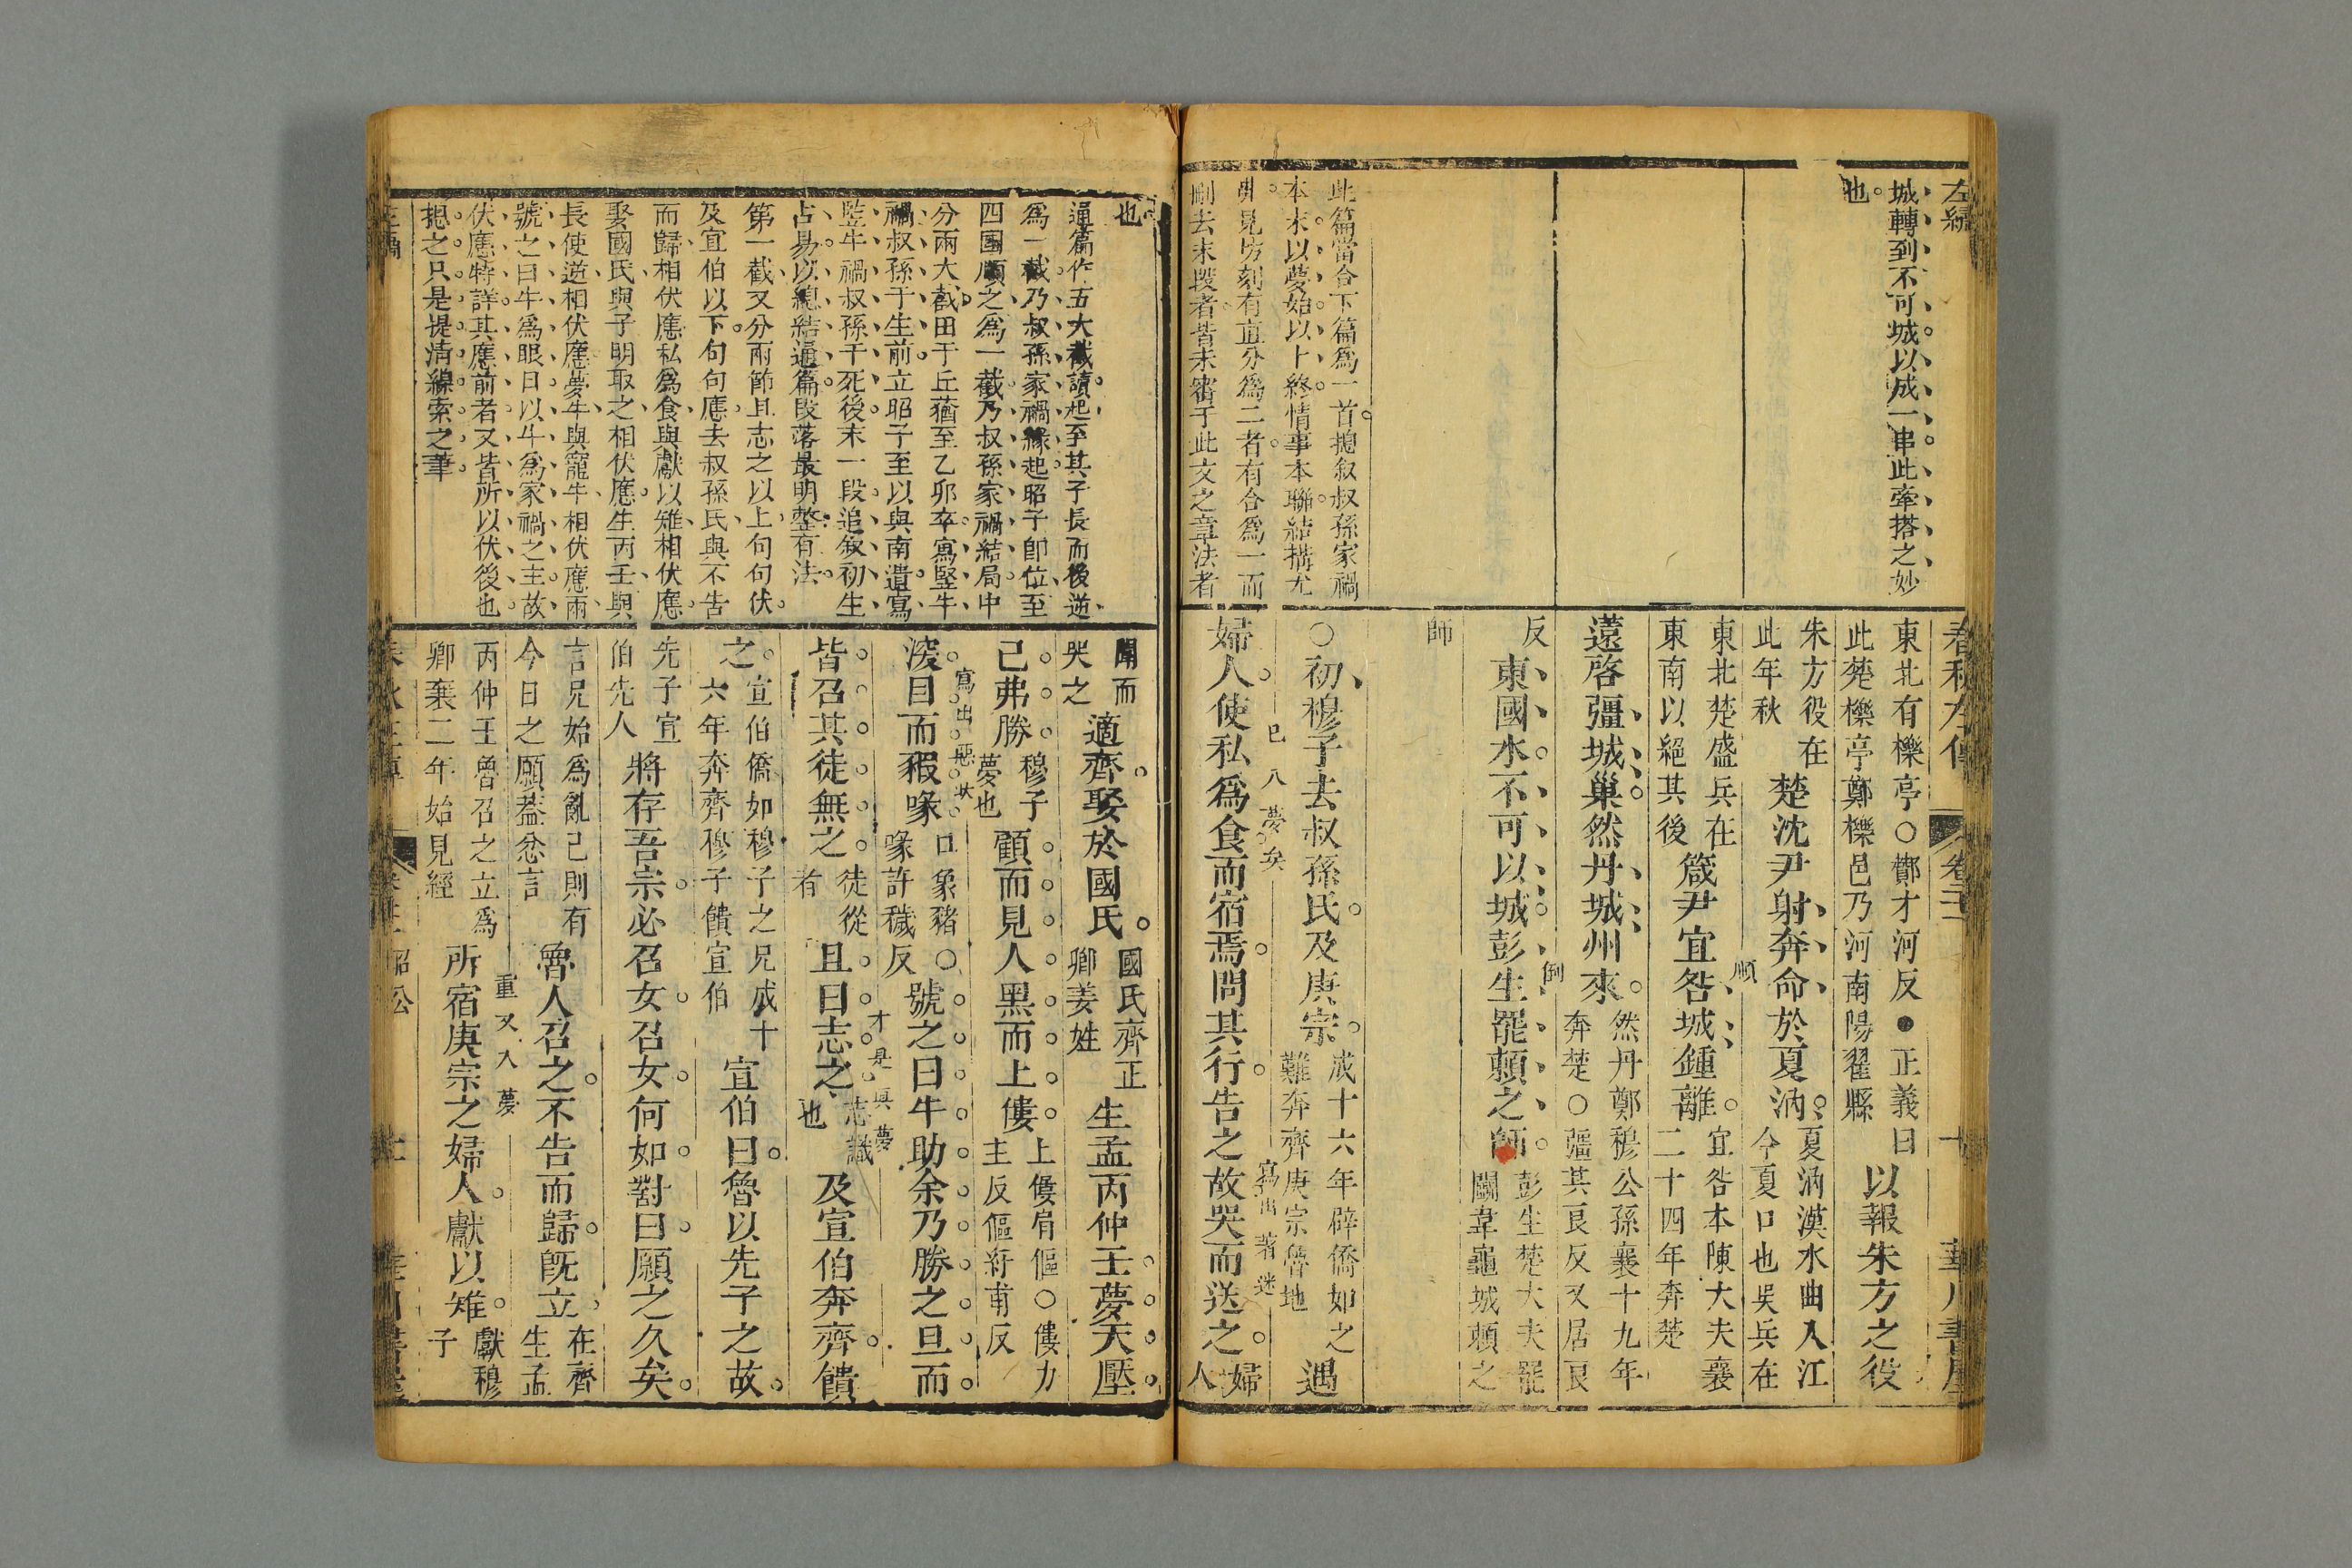 左繡
城轉到不可城以成一串此牽搭之妙
也
此篇當合下篇爲一首摠叙叔孫家禍
本末以夢始以卜終情事本聯結搆尤
典見坊刻有直分爲二者有合爲一而
刪去末段者皆未審于此文之章法者
春秋左傳
華川書屋
東北有櫟亭○酇才河反●正義曰
此楚櫟亭鄭櫟邑乃河南陽翟縣
以報朱方之役
朱方役在
此年秋
楚沈尹射奔命於夏汭
夏汭漢水曲入江
今夏口也吳兵在
東北楚盛兵在
東南以絕其後
順
箴尹宜咎城鍾離
宜咎本陳大夫襄
二十四年奔楚
薳啓彊城巢然丹城州來
然丹鄭穆公孫襄十九年
奔楚○彊其良反又居良
反
倒
東國水不可以城彭生罷賴之師
彭生楚大夫罷
鬬韋龜城賴之
師
○初穆子去叔孫氏及庚宗
成十六年辟僑如之
難奔齊庚宗魯地
遇
已入夢矣
寫出著迷
婦人使私爲食而宿焉問其行告之故哭而送之
婦
人
也
通篇作五大截讀起至其子長而後逆
爲一截乃叔孫家禍緣起昭子卽位至
四國順之爲一截乃叔孫家禍結局中
分兩大截田于丘蕕至乙卯卒寫豎牛
禍叔孫于生前立昭子至以與南遺寫
豎牛禍叔孫于死後末一段追叙初生
占易以總結通篇段落最明整有法
第一截又分兩節且志之以上句句伏
及宣伯以下句句應去叔孫氏與不告
而歸相伏應私爲食與獻以雉相伏應
娶國氏與子明取之相伏應生丙壬與
長使逆相伏應夢牛與寵牛相伏應而
號之曰牛爲眼目以牛爲家禍之主故
伏應特詳其應前者又皆所以伏後也
摠之只是提清線索之筆
聞而
哭之
適齊娶於國氏
國氏齊正
卿姜姓
生孟丙仲壬夢天壓
己弗勝
穆子
夢也
顧而見人黑而上僂
上僂肩傴○僂力
主反傴紆甫反
寫出惡狀
深目而豭喙
口象豬○
喙許穢反
號之曰牛助余乃勝之旦而
才是眞夢
皆召其徒無之
徒從
者
且曰志之
志識
也
及宣伯奔齊饋
之
宣伯僑如穆子之兄成十
六年奔齊穆子饋宣伯
宣伯曰魯以先子之故
先子宣
伯先人
將存吾宗必召女召女何如對曰願之久矣
言兄始爲亂己則有
今日之願葢忿言
魯人召之不告而歸旣立
在齊
生孟
重又入夢
丙仲壬魯召之立爲
卿襄二年始見經
所宿庚宗之婦人獻以雉
獻穆
子
昭公